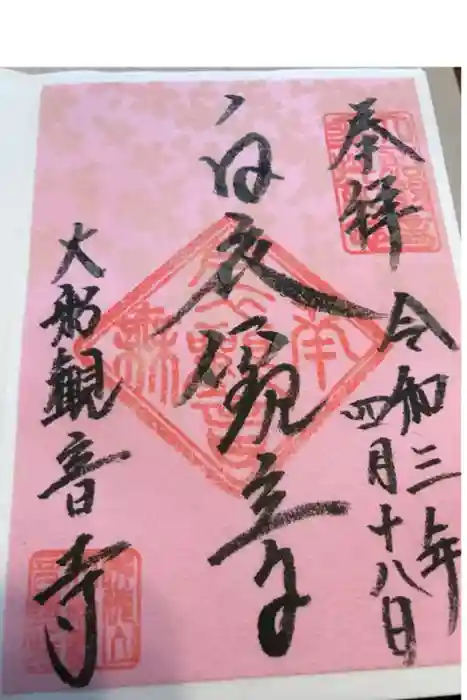 奉拝
令和三年
四月十八日
白衣観音
大船観音寺